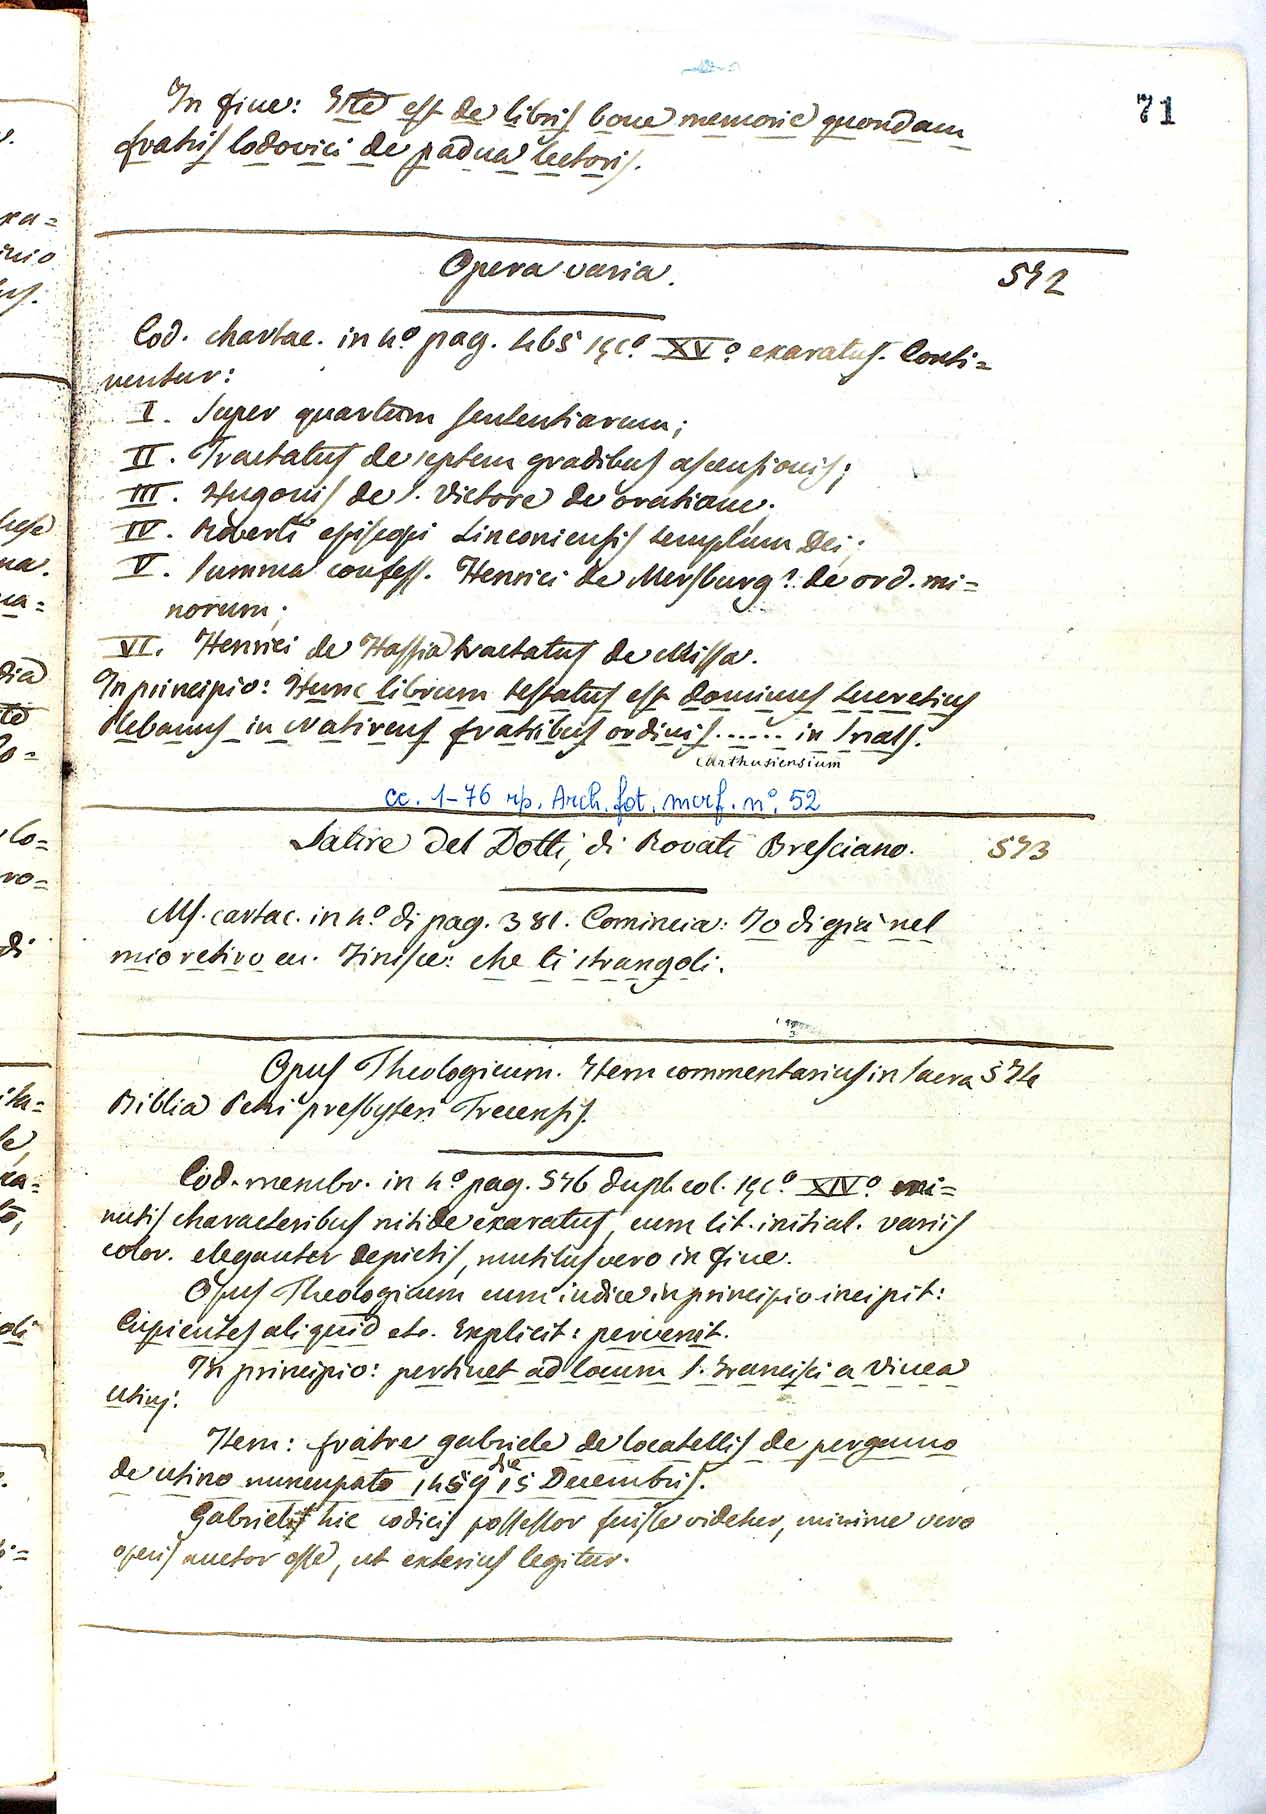 71
In fine: Iste est de libris bone memorie quondam
fratris lodovici de padua lectoris.
Opera varia. 572
Cod. chartac. in 4º pag. 465 sæc.º XVº exaratus. Conti=
nentur:
I. Super quartum sententiarum;
II. Tractatus de septem gradibus ascensionis;
III. Hugonis de S. Victore de oratione;
IV. Roberti episcopi Linconiensis templum Dei;
V. Summa confess. Henrici de Mersburg? de ord. mi=
norum;
VI. Henrici de Hassia tractatus de Missa.
In principio: Hunc librum testatus est dominus lucretius
Plebanus in fratribus ordinis ...... in Snals.
Carthusiensium
cc. 1-76 rip. Arch. fot. marf. nº. 52
Satire del Dotti, di Rovati Bresciano. 573
Ms. cartac. in 4º di pag. 381. Comincia: Io di già nel
mio retiro ec. Finisce: che ti strangoli.
Opus Theologicum. Item commentarius in Sacra 574
Biblia Petri presbyteri Trecensis.
Cod. membr. in 4º pag. 576 dupl. col. sæc.º XIVº mi=
nutis characteribus nitide exaratus, cum lit. initial. variis
color. eleganter depictis, mutilus vero in fine.
Opus Theologicum cum indice in principio incipit:
Cupientes aliquid etc. Explicit: pervenit.
In principio: pertinet ad locum S. Francisci a Vinea
Utini.
Item: fratre gabriele de locatellis de pergamo
de utino nuncupato 1459 die 15 Decembris.
Gabriel hic codicis possessor fuisse videtur, minime vero
operis auctor esse, ut exterius legitur.